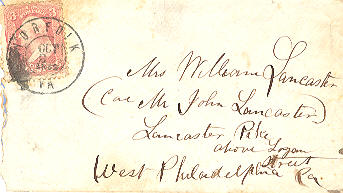 NORFOLK
OCT
VA
Mrs William Lancaster
(Care Mr John Lancaster)
Lancaster Pike
above Logan
Street
West Philadelphia Pa.